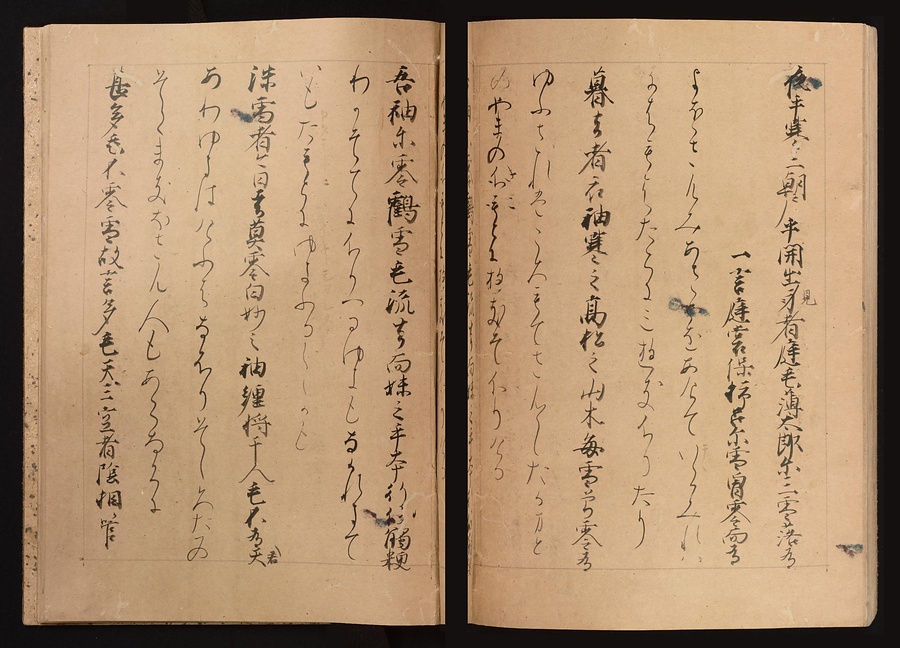 夜乎寒三朝戸乎開出見者庭毛薄太郎尓三雪落有
一云庭裳保杼呂尓雪曽零而有
よをさむみあさとをあけていてみれは
にはもはたらにみゆきふりたり
暮去者衣袖寒之高松之山木毎雪曽零有
ゆふされはころもてさむしたかまと
のやまのきことにゆきそふりける
吾袖尓零鶴雪毛流去而妹之手本伊行觸粳
わかそてにふりつるゆきもなかれて
いもたもとにゆき
沫雪者今日者莫零白妙之袖纒将干人毛不有君
あわゆきはけふはなふりそしろたへの
そてまきほさん人もあらなくに
甚多毛不零雪故言多毛天三空者陰相管